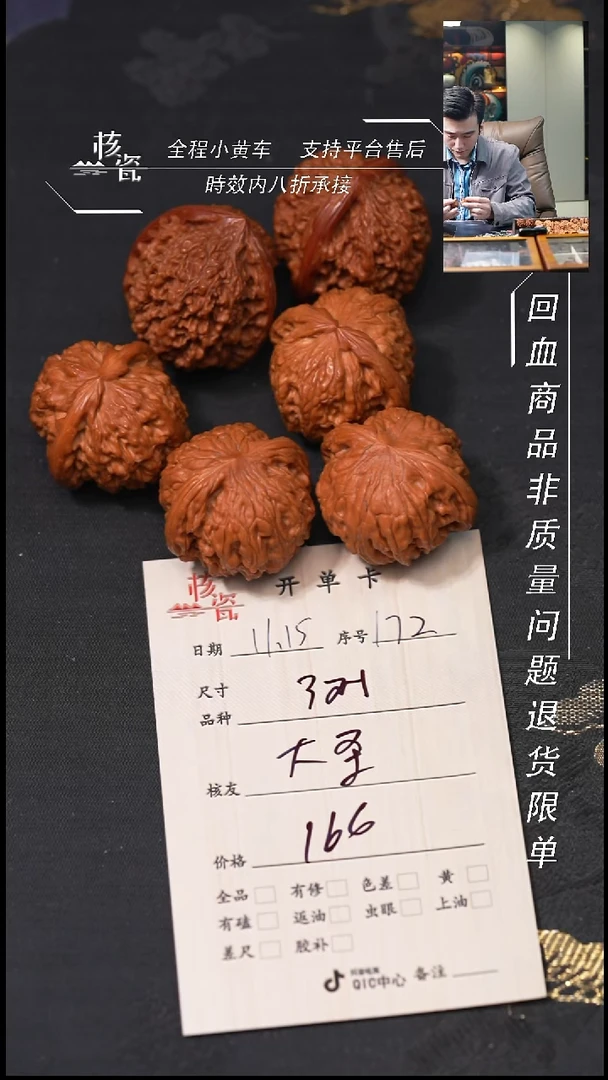 核瓷
全程小黄车 支持平台售后
時效内八折承接
回血商品非质量问题退货限单
核瓷 开单卡
日期 11.15 序号 172
尺寸 3对
品种
核友 大圣
价格 166
全品 有修 色差 黄
有磕 返油 虫眼 上油
差尺 胶补
QIC中心 备注